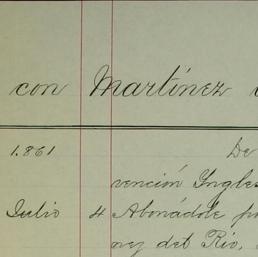 con Martínez
1.861 De
vención Ingles
Julio 4 Abonádole po
nez del Rio,